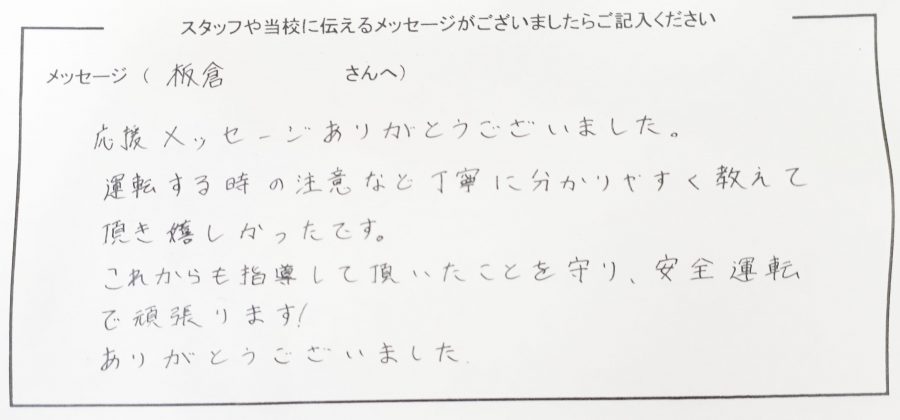 スタッフや当校に伝えるメッセージがございましたらご記入ください
メッセージ ( 板倉 さんへ)
応援メッセージありがとうございました。
運転する時の注意など丁寧に分かりやすく教えて
頂き嬉しかったです。
これからも指導して頂いたことを守り、安全運転
で頑張ります!
ありがとうございました.